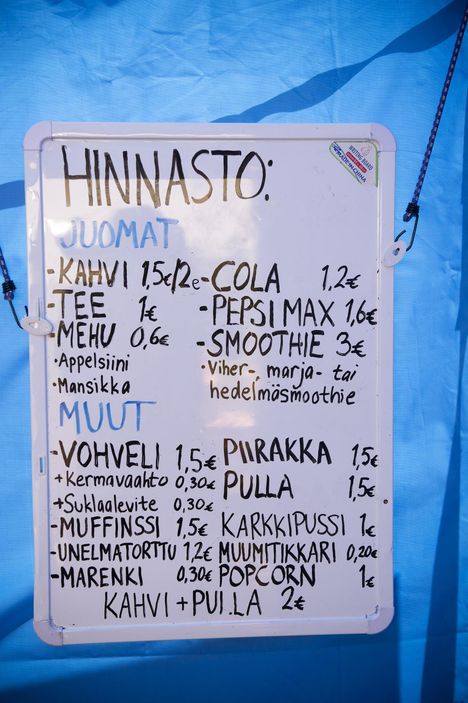 HINNASTO:
JUOMAT
-KAHVI 1,5€/2€
-TEE 1€
-MEHU 0,6€
•Appelsiini
•Mansikka
-COLA 1,2€
-PEPSI MAX 1,6€
-SMOOTHIE 3€
•Viher-, marja- tai
hedelmäsmoothie
MUUT
-VOHVELI 1,5€
+Kermavaahto 0,30€
+Suklaalevite 0,30€
-MUFFINSSI 1,5€
-UNELMATORTTU 1,2€
-MARENKI 0,30€
PIIRAKKA 1,5€
PULLA 1,5€
KARKKIPUSSI 1€
MUUMITIKKARI 0,20€
POPCORN 1€
KAHVI + PULLA 2€